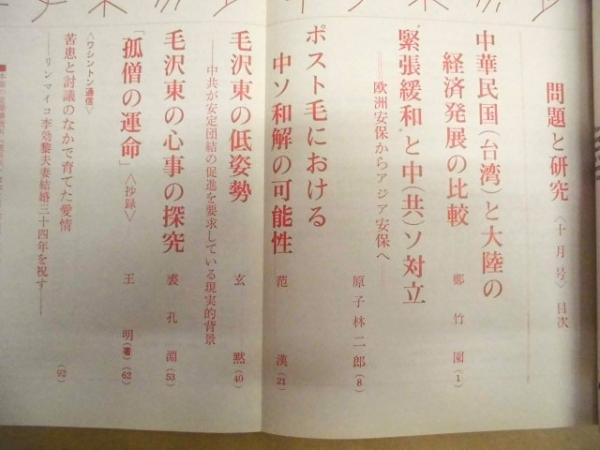 問題と研究〈十月号〉目次
中華民国(台湾)と大陸の
経済発展の比較
鄭竹園(1)
緊張緩和と中(共)ソ対立
──欧洲安保からアジア安保へ──
原子林二郎(8)
ポスト毛における
中ソ和解の可能性
范漢(21)
毛沢東の低姿勢
──中共が安定団結の促進を要求している現実的背景
玄黙(40)
毛沢東の心事の探究
裘孔淵(53)
「孤僧の運命」〈抄録〉
王明(著)(62)
〈ワシントン通信〉
苦患と討議のなかで育てた愛情
──リンマイコ李効黎夫妻結婚三十四年を祝す──
(92)